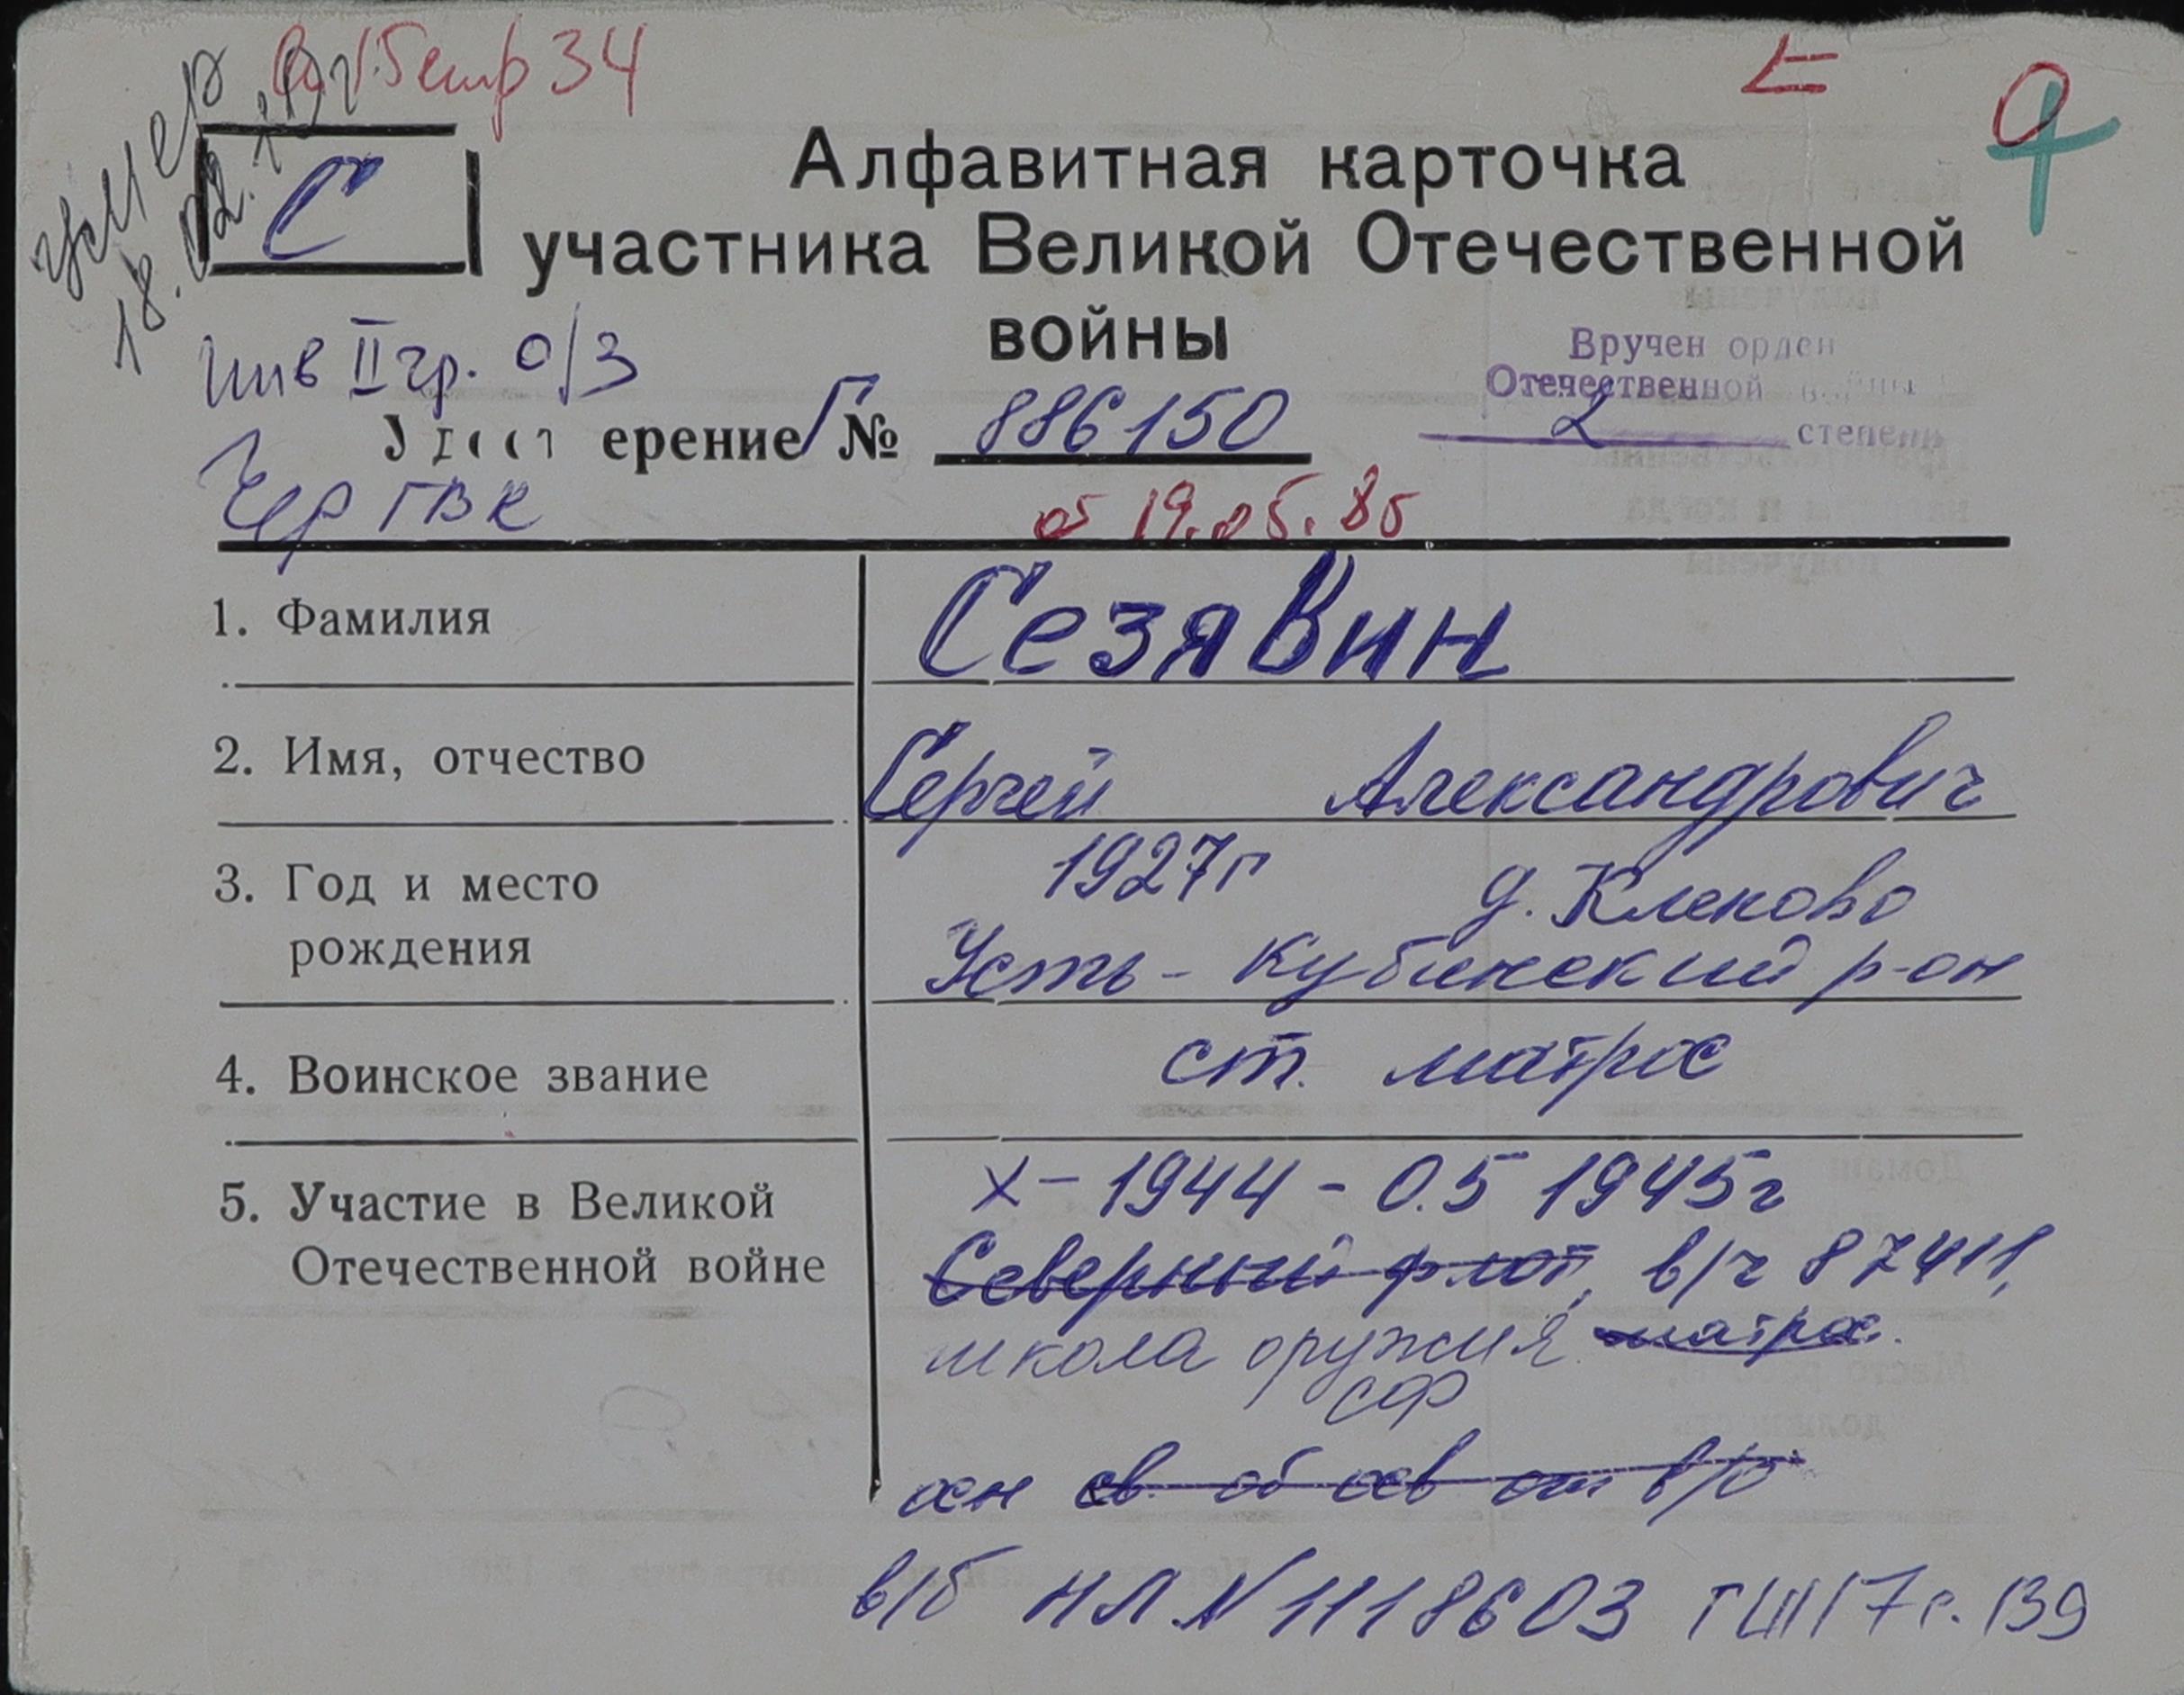 стр 34
умер
18.02.
С
Алфавитная карточка
участника Великой Отечественной
войны
инв II гр. о/з
Вручен орден
Отечественной войны
2 степени
ерение Г № 886150
Чер ГВК
от 19.05.86
1. Фамилия Сезявин
2. Имя, отчество Сергей Александрович
3. Год и место 1927г д. Клеково
рождения Усть-Кубинский р-он
4. Воинское звание ст. матрос
5. Участие в Великой X-1944 - 0.5 1945г
Отечественной войне Северный флот, в/ч 87411,
школа оружия матрос.
СФ
осн св об осв от в/о
в/б НЛ N 1118603 с. 139